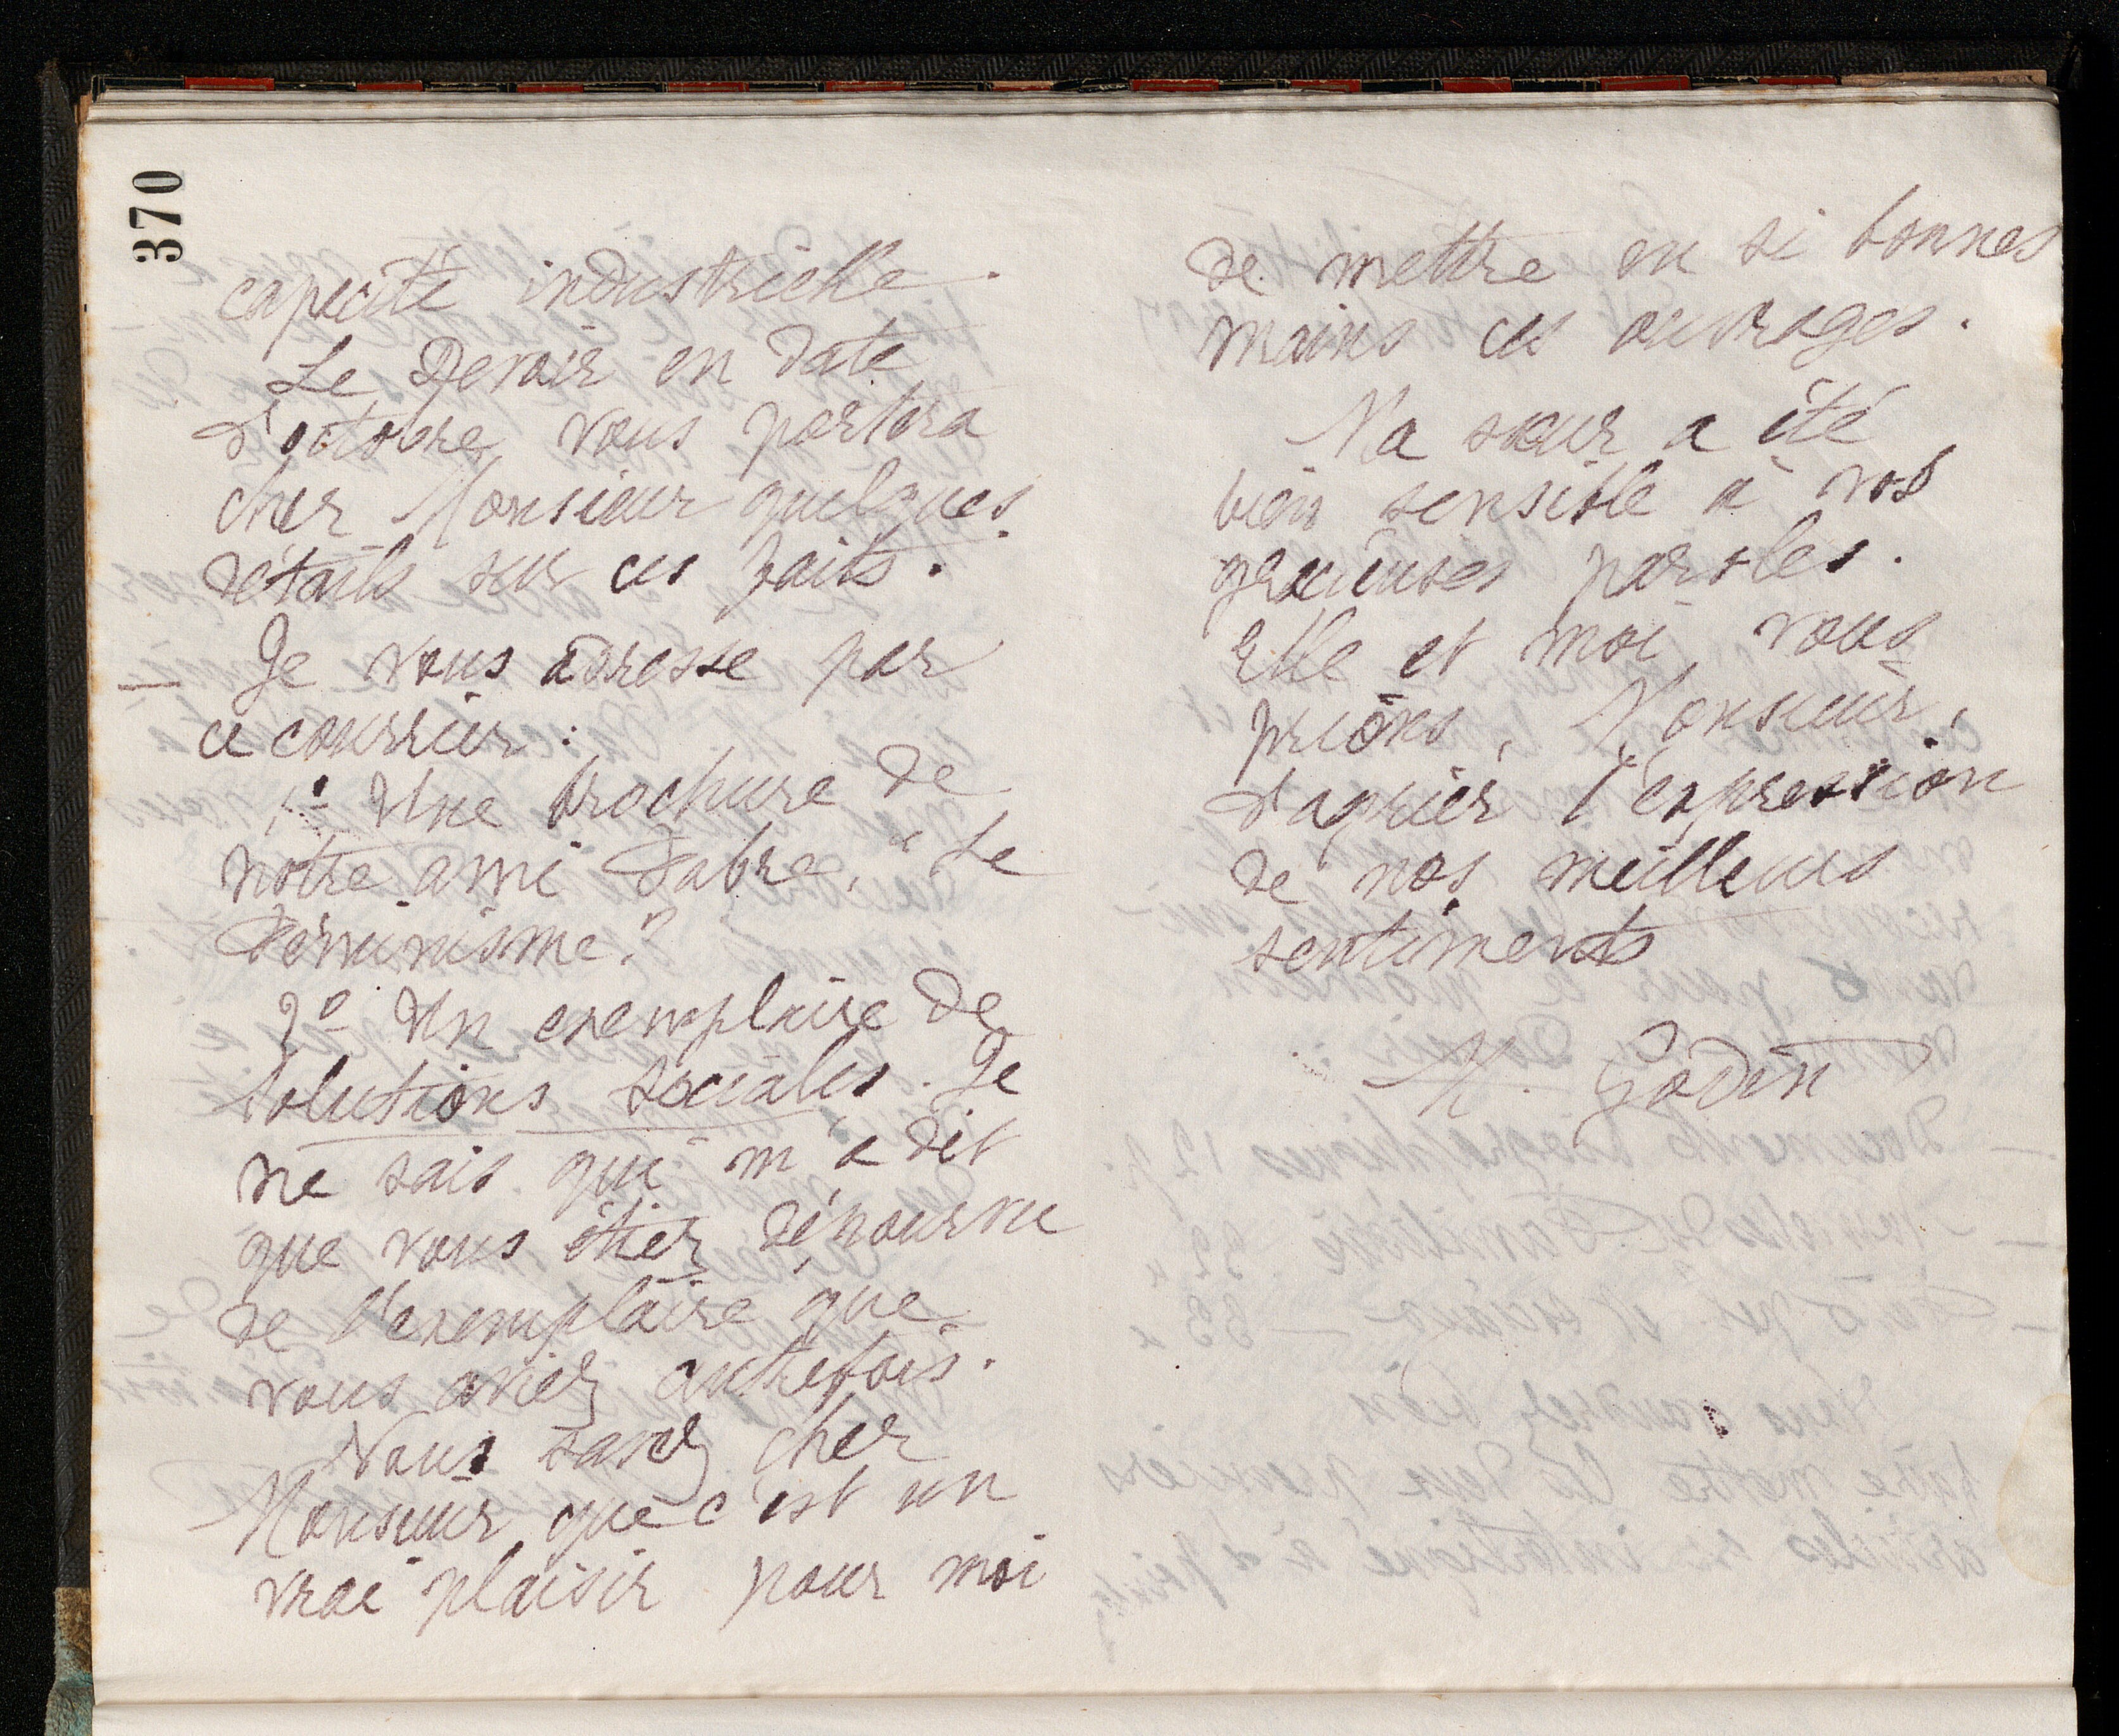 370
capacité industrielle.
Le Devoir en date
d'octobre vous portera
cher Monsieur quelques
détails sur ces faits.
— Je vous adresse par
ce courrier :
1° Une brochure de
notre ami Fabre, "Le
Féminisme"
2° Un exemplaire de
Solutions sociales. Je
ne sais qui m'a dit
que vous étiez dépourvu
de l'exemplaire que
vous aviez autrefois.
Vous savez cher
Monsieur que c'est un
vrai plaisir pour moi
de mettre en si bonnes
mains ces ouvrages.
Ma sœur a été
bien sensible à vos
gracieuses paroles.
Elle et moi, vous
prions, Monsieur,
d'agréer l'expression
de nos meilleurs
sentiments
M. Godin